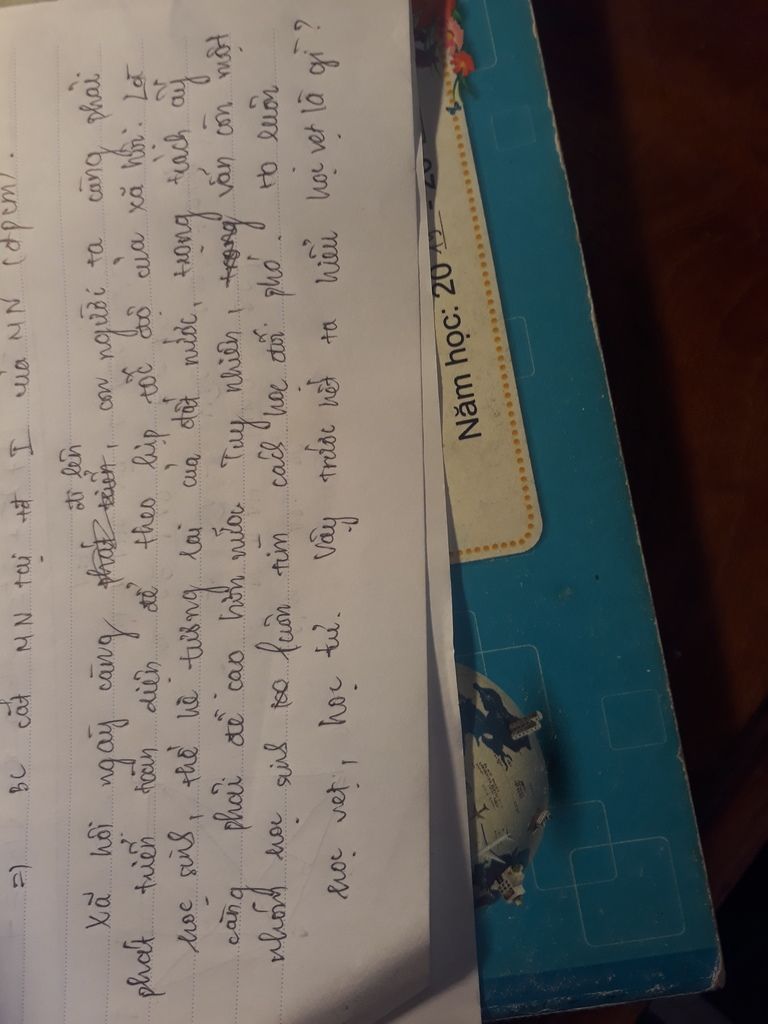 =) BC cắt MN tại tđ I của MN (đpcm).
đi lên
Xã hội ngày càng phát triển, con người ta càng phải
phát triển toàn diện để theo kịp tốc độ của xã hội. Là
học sinh, thế hệ tương lai của đất nước, trọng trách ấy
càng phải đề cao hơn nữa. Tuy nhiên, trong vẫn còn một
nhóm học sinh luôn tìm cách học đối phó. to luôn
học vẹt, học tủ. Vậy trước hết ta hiểu học vẹt là gì?
Năm học: 20 19 - 20